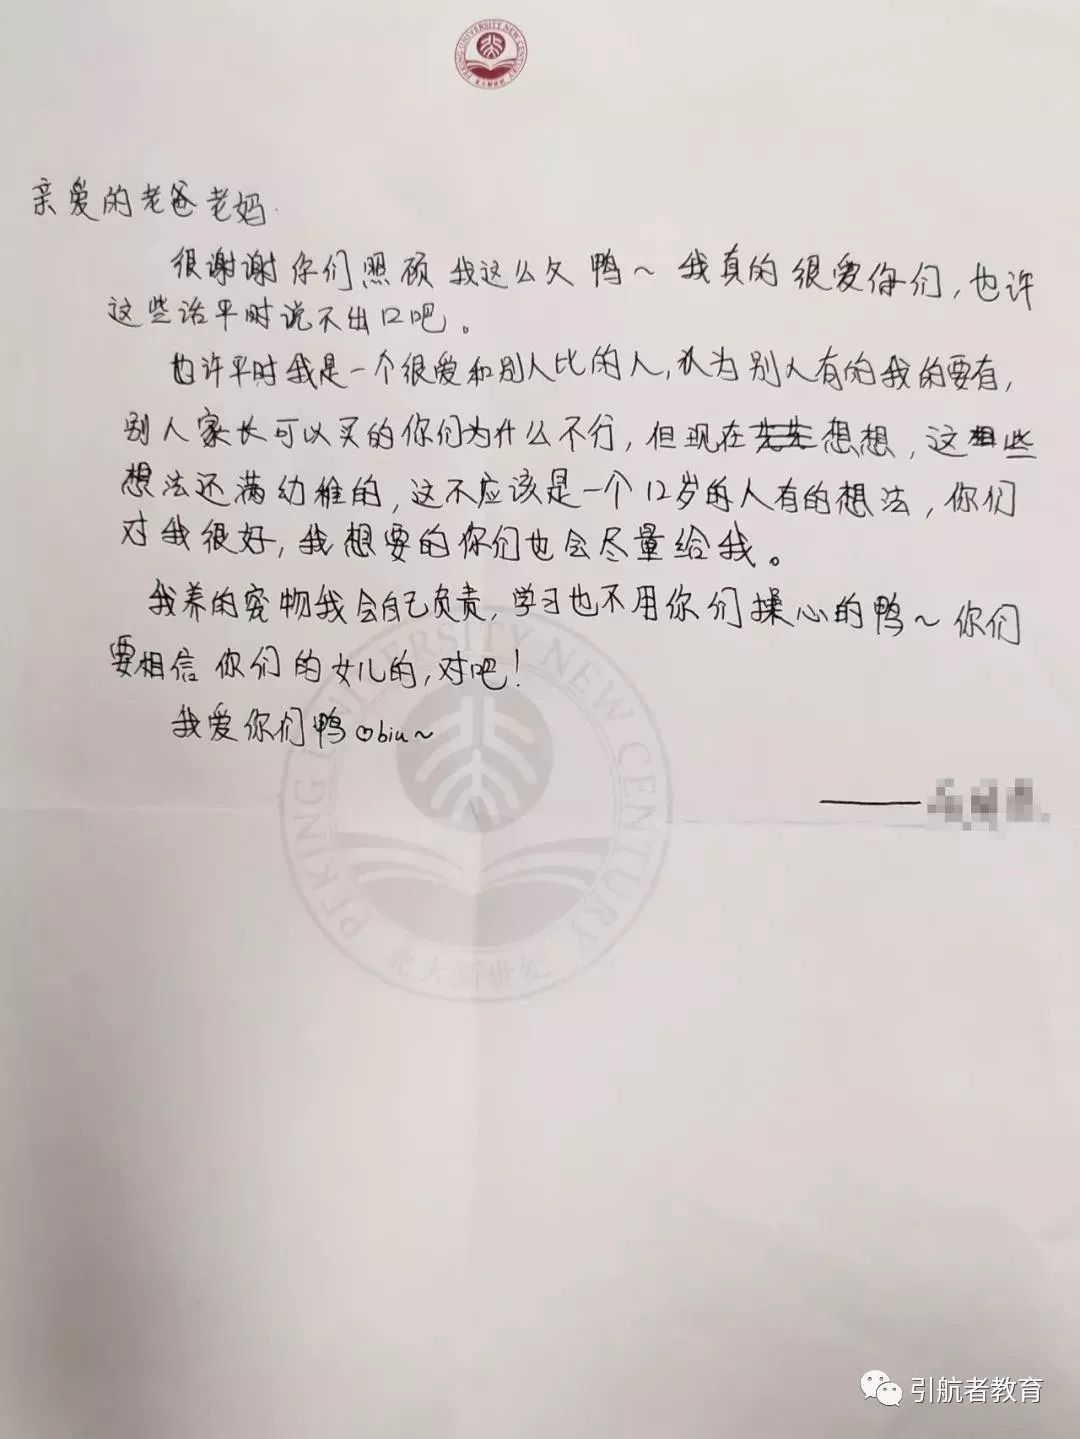 PEKING UNIVERSITY NEW CENTURY
北大新世纪
亲爱的老爸老妈.
很谢谢你们照顾我这么久鸭~我真的很爱你们,也许
这些话平时说不出口吧。
也许平时我是一个很爱和别人比的人,认为别人有的我的要有,
别人家长可以买的你们为什么不行,但现在想想,这些
想法还满幼稚的,这不应该是一个12岁的人有的想法,你们
对我很好,我想要的你们也会尽量给我。
我养的宠物我会自己负责,学习也不用你们操心的鸭~你们
要相信你们的女儿的,对吧!
我爱你们鸭♡biu~
PEKING UNIVERSITY NEW CENTURY
北大新世纪
引航者教育